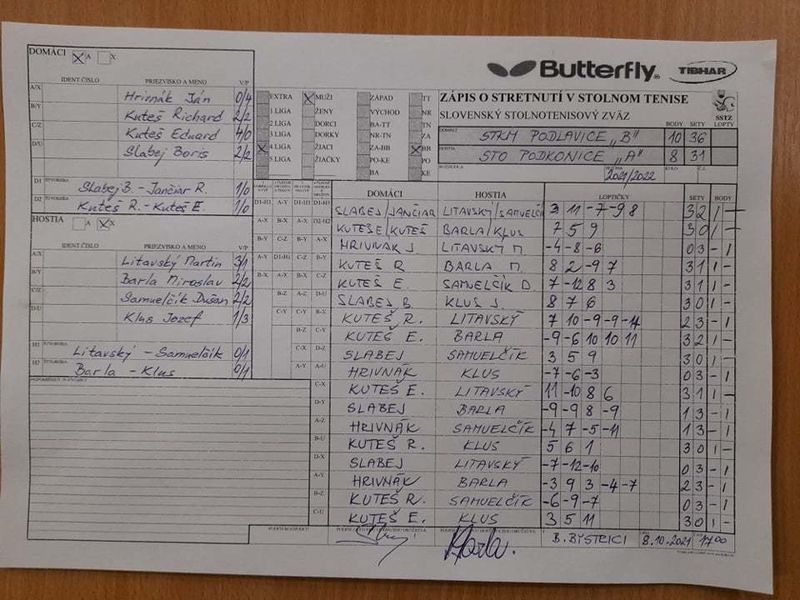 DOMÁCI X A X
Butterfly TIBHAR
IDENT.ČÍSLO PRIEZVISKO A MENO V/P
A/X Hrivnák Ján 0/4
B/Y Kuteš Richard 2/2
C/Z Kuteš Eduard 4/0
D/U Slabej Boris 2/2
D1 Slabej B. - Jančiar R. 1/0
D2 Kuteš R. - Kuteš E. 1/0
EXTRA X MUŽI ZÁPAD TT
1 LIGA ŽENY VÝCHOD NR
2 LIGA DORCI BA-TT TN
3 LIGA DORKY NR-TN ZA
X 4 LIGA ŽIACI ZA-BB X BB
5 LIGA ŽIAČKY PO-KE PO
BA KE
ZÁPIS O STRETNUTÍ V STOLNOM TENISE
SLOVENSKÝ STOLNOTENISOVÝ ZVÄZ
SSTZ
BODY SETY LOPTY
STKM PODLAVICE „B" 10 36
STO PODKONICE „A" 8 31
2021/2022
HOSTIA A X X
IDENT.ČÍSLO PRIEZVISKO A MENO V/P
A/X Litavský Martin 3/1
B/Y Barla Miroslav 2/2
C/Z Samuelčík Dušan 2/2
D/U Klus Jozef 1/3
H1 Litavský - Samuelčík 0/1
H2 Barla - Klus 0/1
DOMÁCI HOSTIA LOPTIČKY SETY BODY
SLABEJ/JANČIAR LITAVSKÝ/SAMUELČÍK 3 11 -7 -9 8 3 2 1 -
KUTEŠE/KUTEŠ BARLA/KLUS 7 5 9 3 0 1 -
HRIVNÁK J LITAVSKÝ M. -4 -8 -6 0 3 - 1
KUTEŠ R BARLA M. 8 2 -9 7 3 1 1 -
KUTEŠ E. SAMUELČÍK D. 7 -12 8 3 3 1 1 -
SLABEJ B. KLUS J. 8 7 6 3 0 1 -
KUTEŠ R. LITAVSKÝ 7 10 -9 -9 -14 2 3 - 1
KUTEŠ E. BARLA -9 -6 10 10 11 3 2 1 -
SLABEJ SAMUELČÍK 3 5 9 3 0 1 -
HRIVNÁK KLUS -7 -6 -3 0 3 - 1
C-X KUTEŠ E. LITAVSKÝ 11 -10 8 6 3 1 1 -
D-Y SLABEJ BARLA -9 -9 8 -9 1 3 - 1
A-Z HRIVNÁK SAMUELČÍK -4 7 -5 -11 1 3 - 1
B-U KUTEŠ R. KLUS 5 6 1 3 0 1 -
D-X SLABEJ LITAVSKÝ -7 -12 -10 0 3 - 1
A-Y HRIVNÁK BARLA -3 9 3 -4 -7 2 3 - 1
B-Z KUTEŠ R. SAMUELČÍK -6 -9 -7 0 3 - 1
C-U KUTEŠ E. KLUS 3 5 11 3 0 1 -
B. BYSTRICI 8.10.2021 17 00